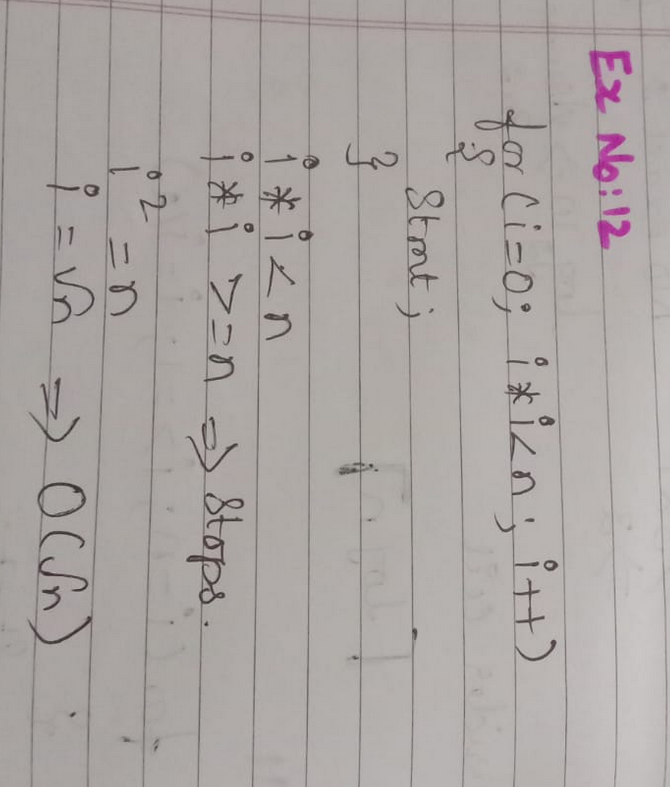 Ex No:12
for (i=0; i*i<n; i++)
{
Stmt;
}
i*i<n
i*i >=n ⇒ Stops.
i² = n
i = √n ⇒ O(√n)